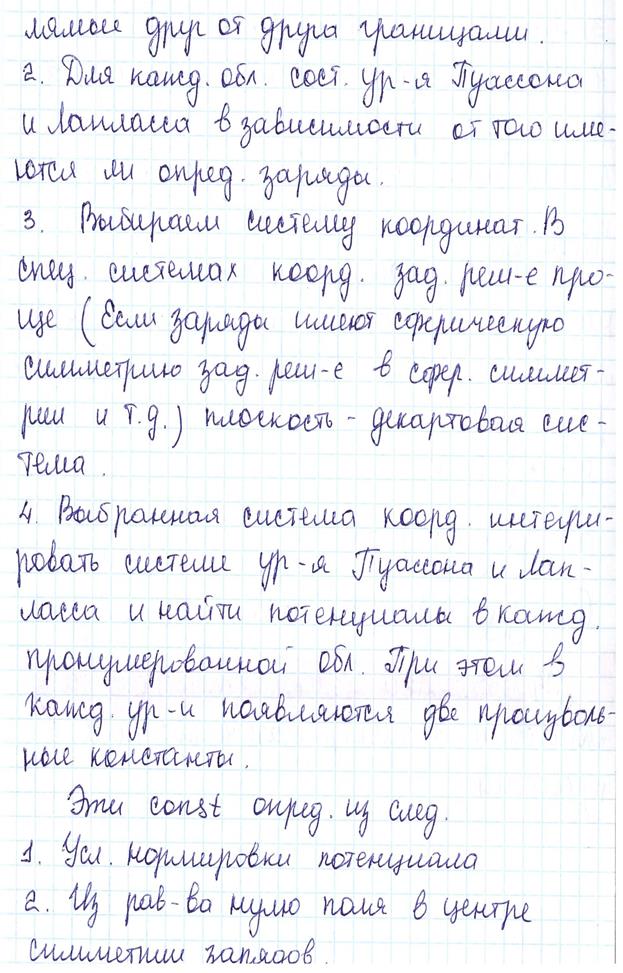 лямые друг от друга границами.
2. Для кажд. обл. сост. ур-я Пуассона
и Лапласса в зависимости от того име-
ются ли опред. заряды.
3. Выбираем систему координат. В
спец. системах коорд. зад. реш-е про-
ще (Если заряды имеют сферическую
симметрию зад. реш-е в сфер. симмет-
рии и т.д.) плоскость - декартовая сис-
тема.
4. Выбранная система коорд. интегри-
ровать системе ур-я Пуассона и Лап-
ласса и найти потенциалы в кажд.
пронумерованной обл. При этом в
кажд. ур-и появляются две произволь-
ные константы.
Эти const опред. из след.
1. Усл. нормировки потенциала
2. Из рав-ва нулю поля в центре
симметрии зарядов.